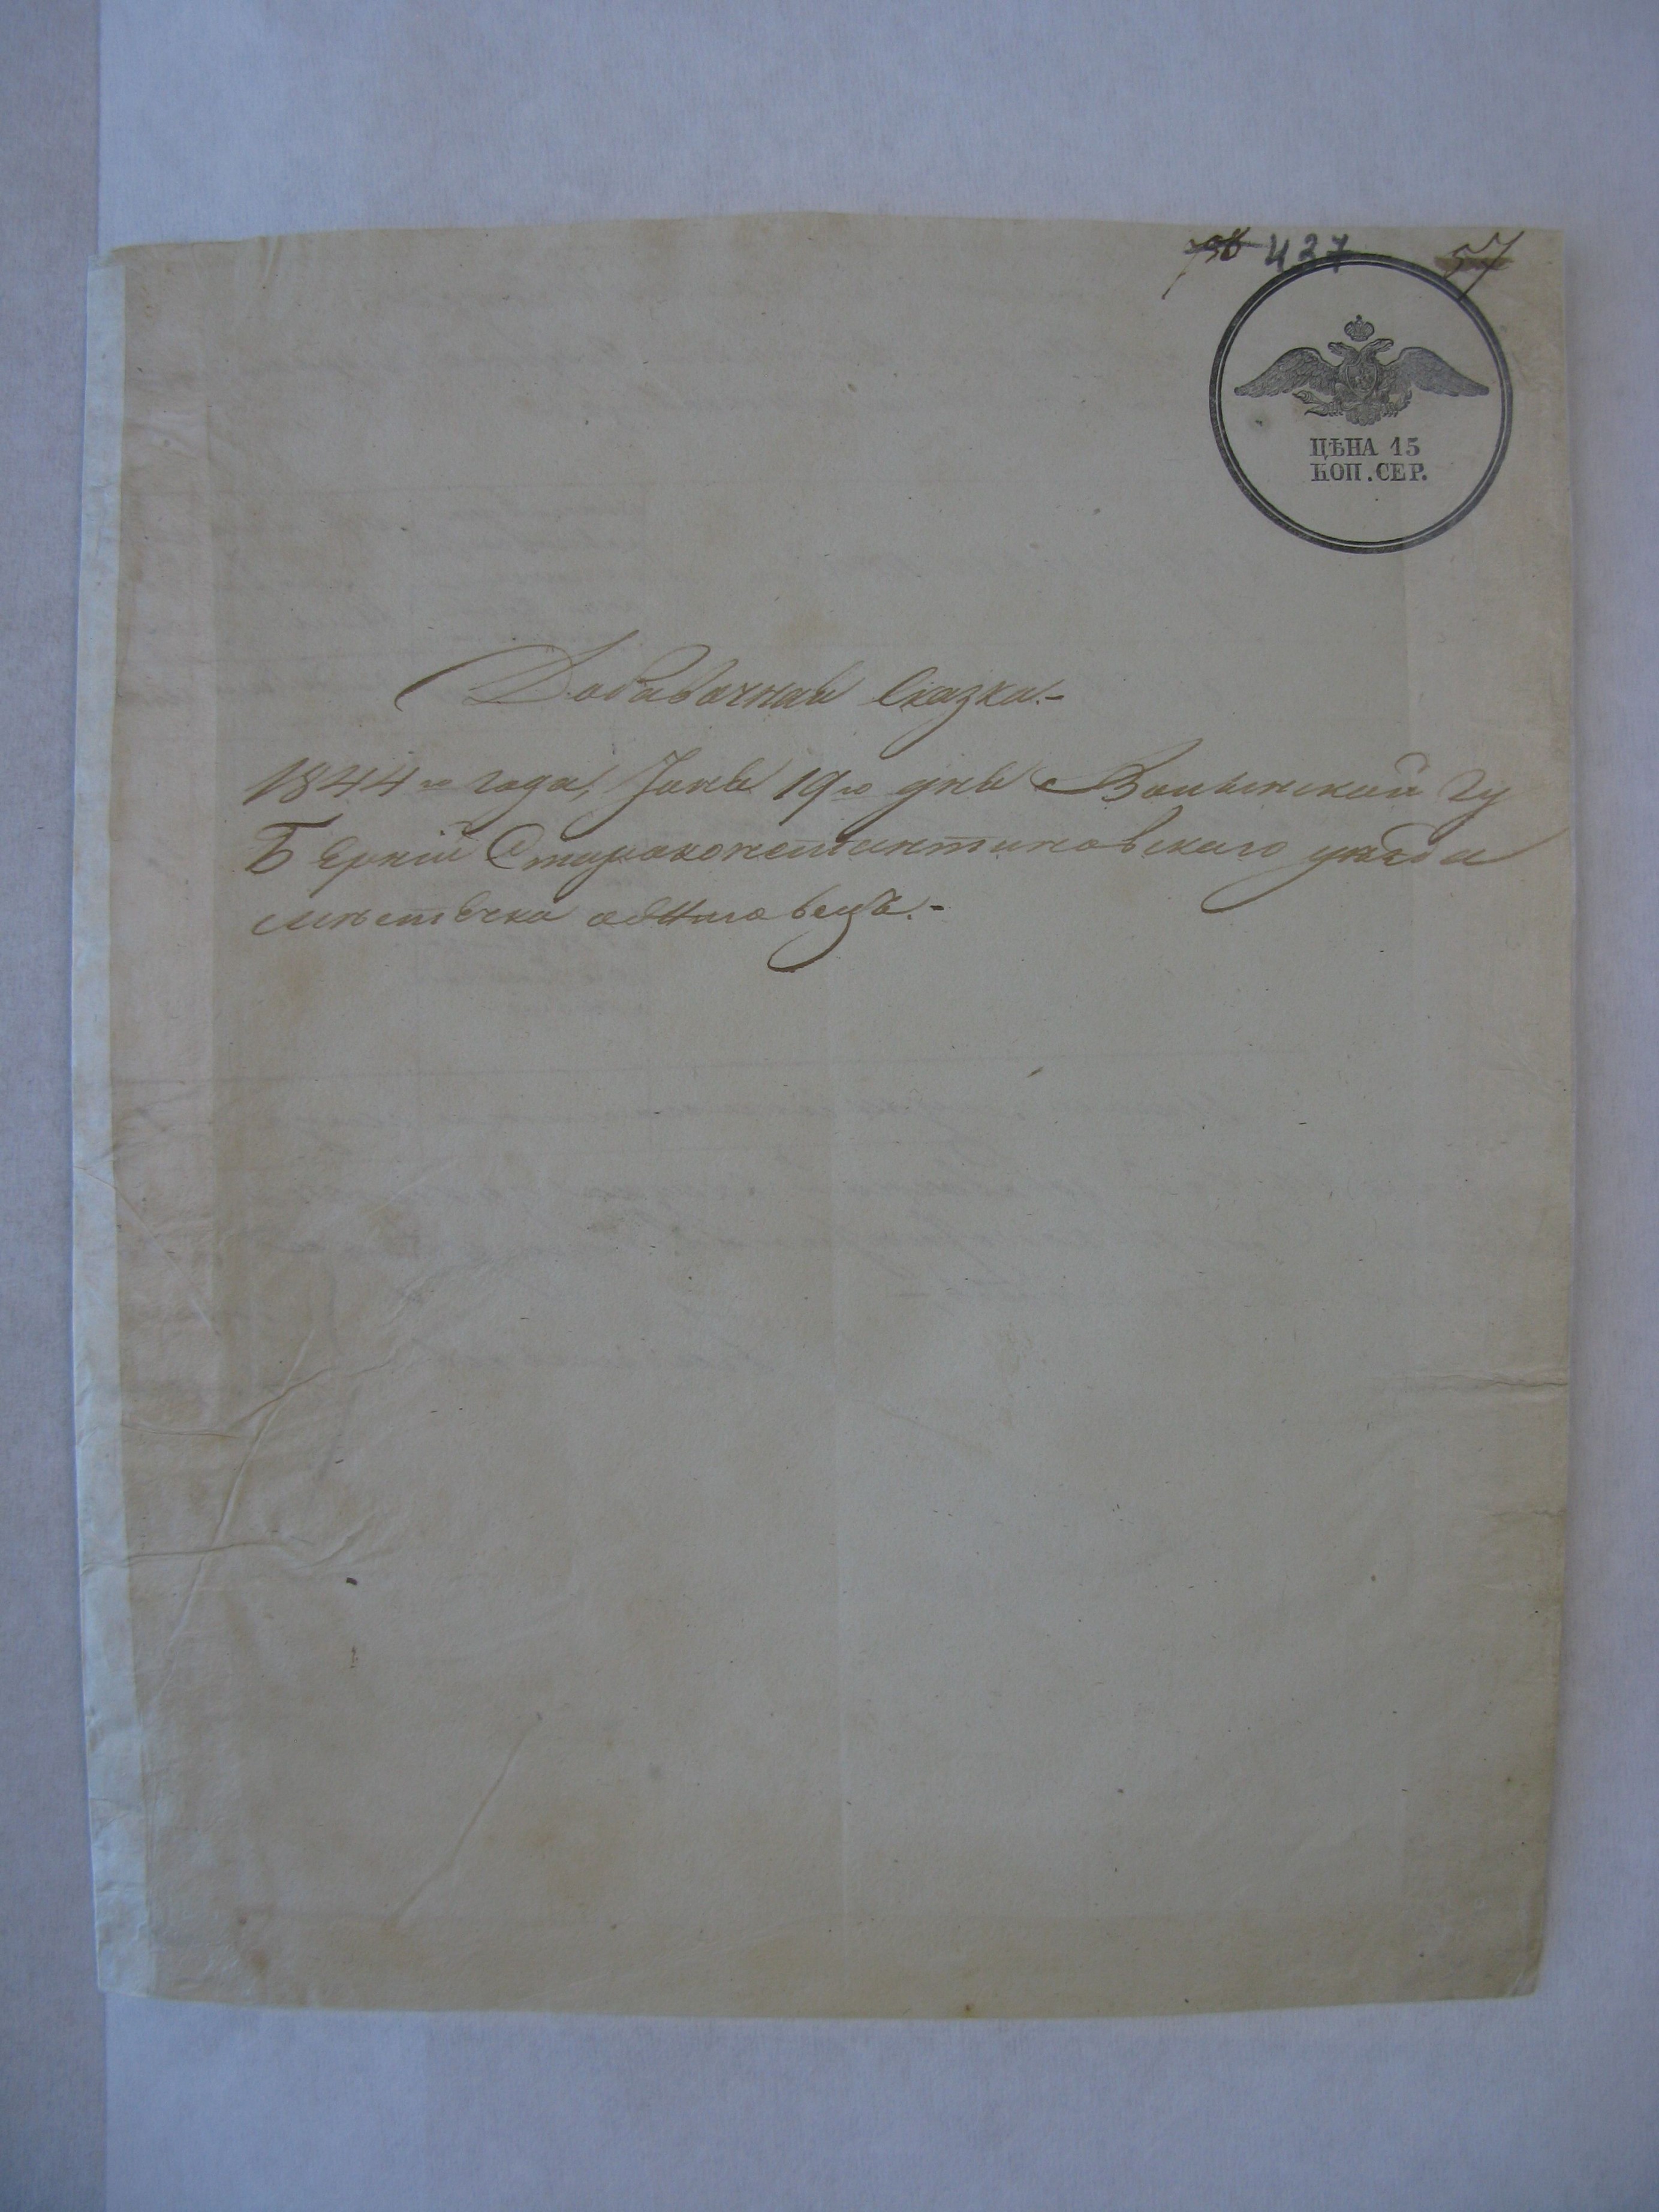 437 57
ЦѢНА 15
КОП. СЕР.
Добавочная Сказка.-
1844го года, 19го дня Волынской Гу
Берніи Староконстантиновскаго уѣзда
мѣстечка